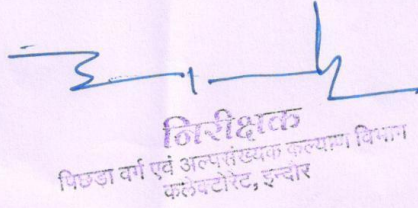 निरीक्षक
पिछड़ा वर्ग एवं अल्पसंख्यक कल्याण विभाग
कलेक्टोरेट, इन्दौर